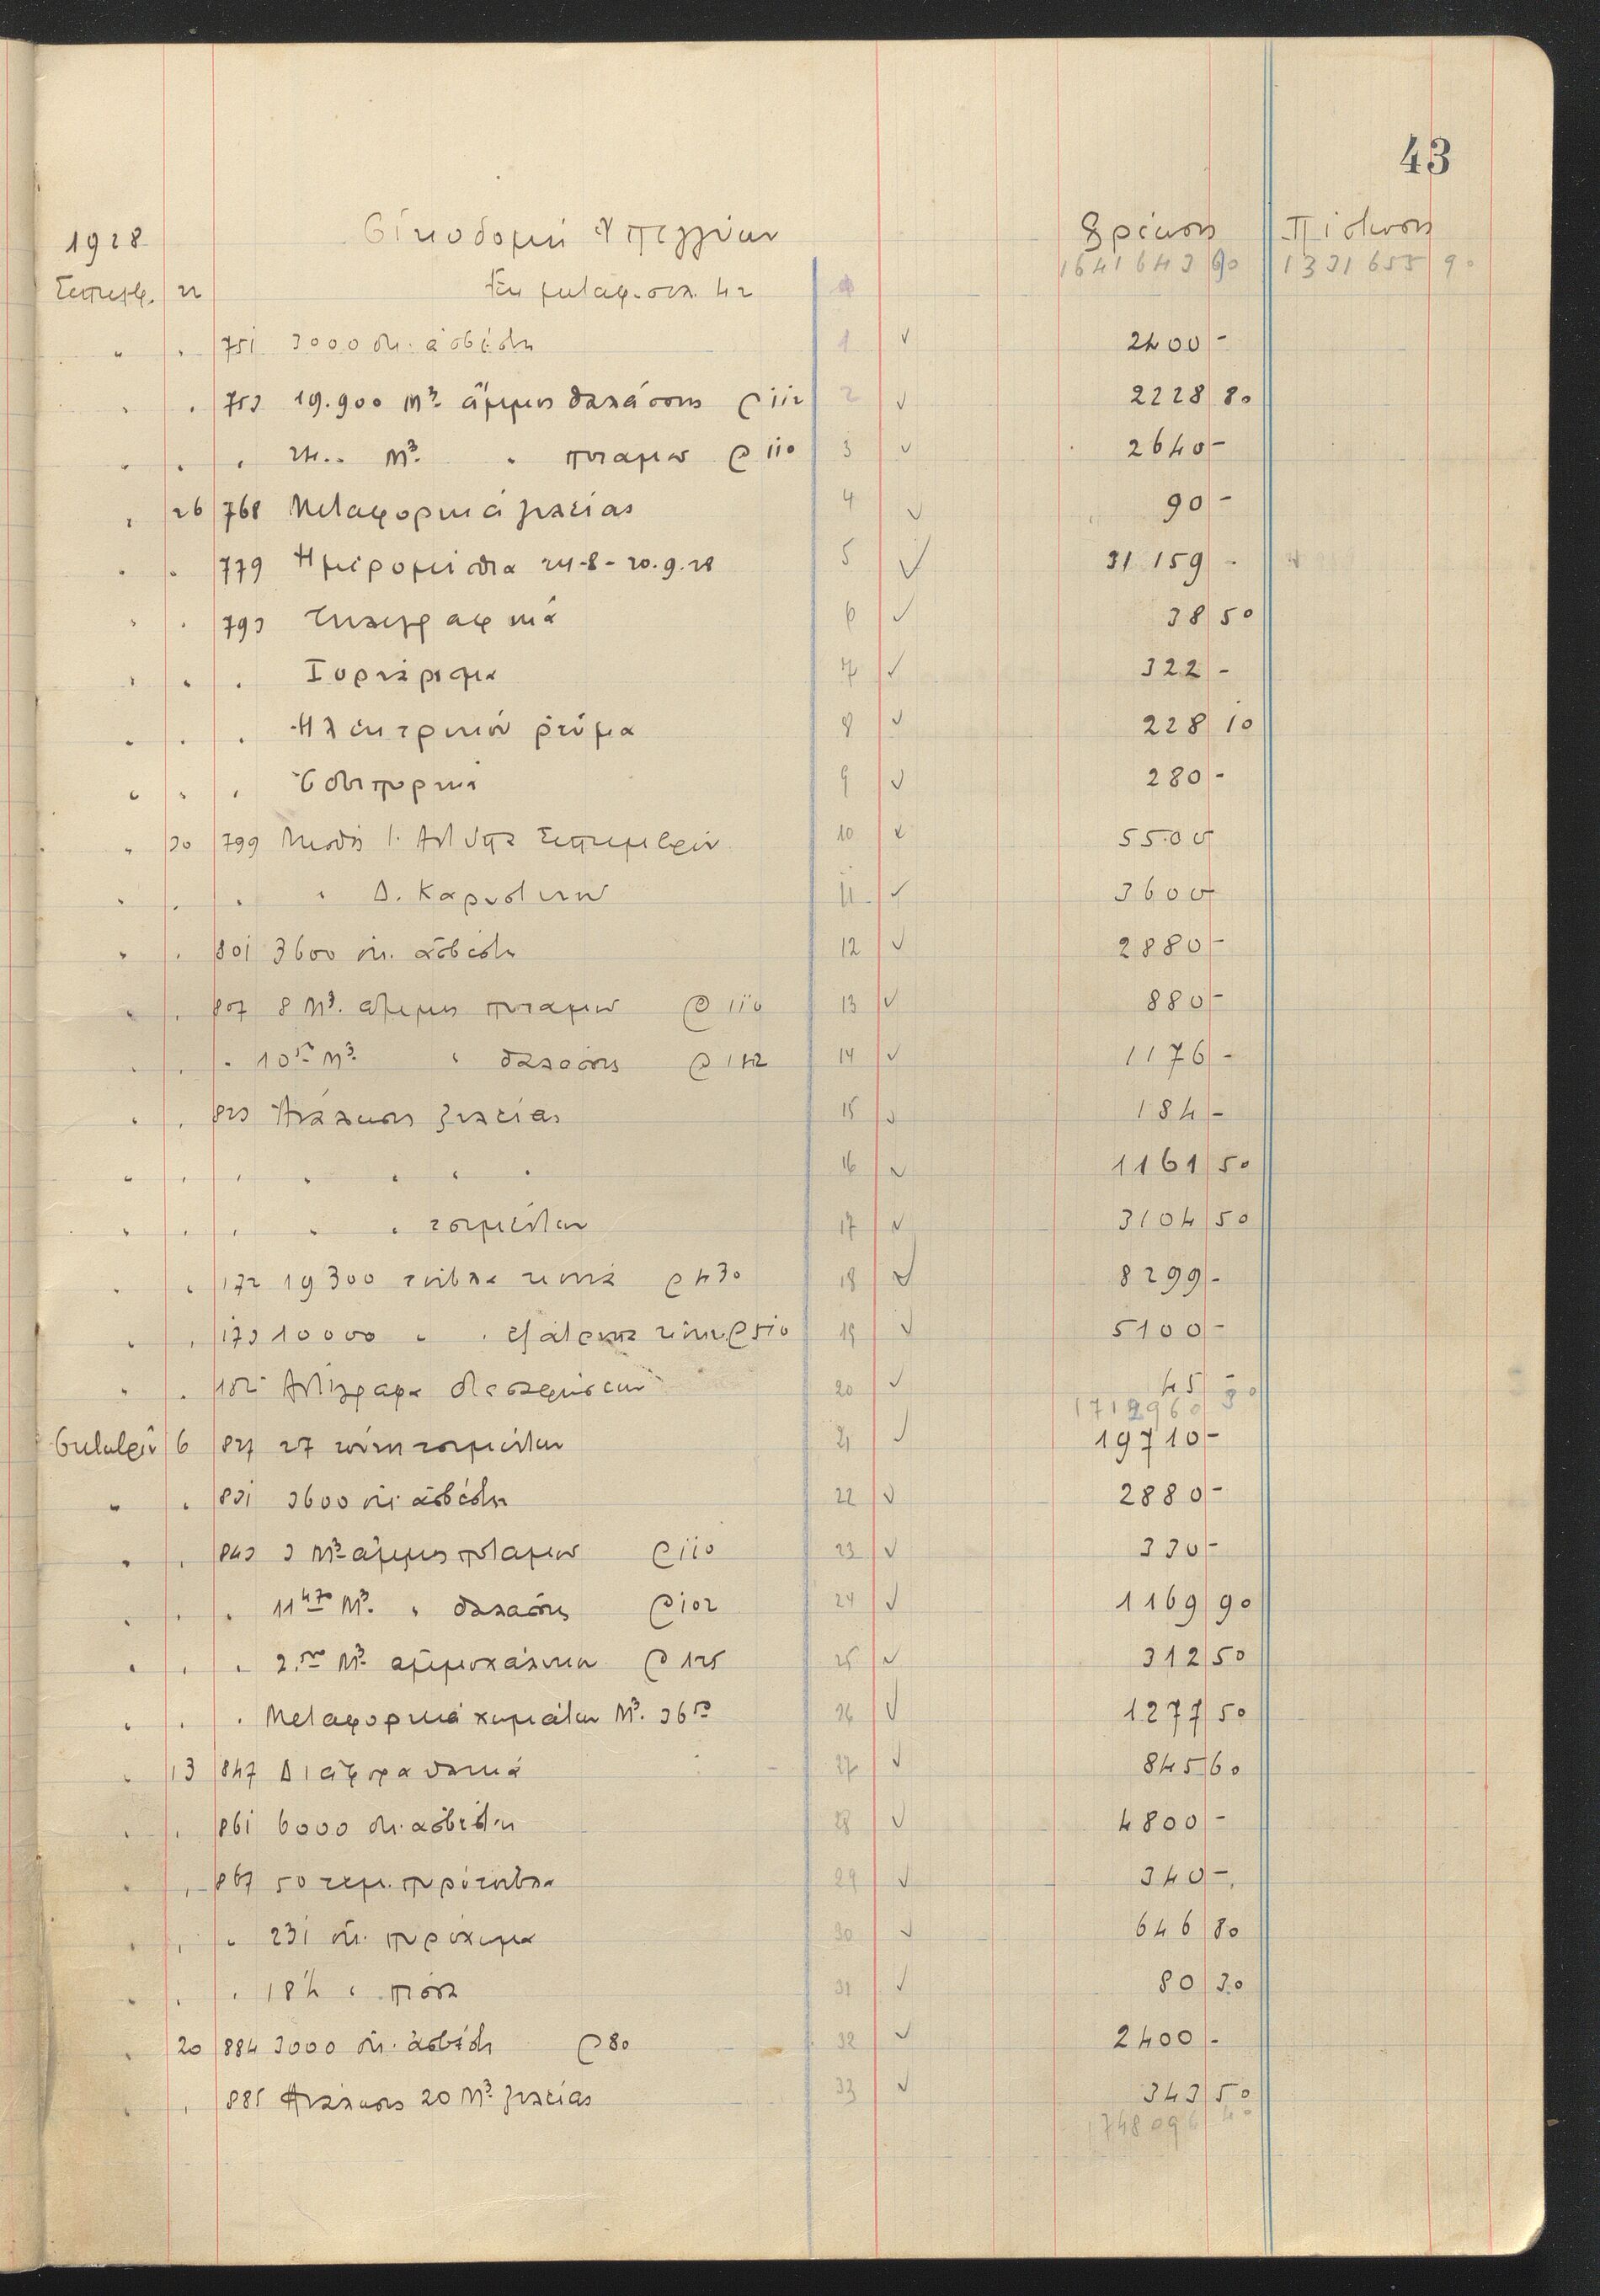 43
1928 Οἰκοδομὴ Χρέωσις Πίστωσις
Σεπτεμβ. 22 Ἐκ μεταφ. σελ. 42 1641643 60 1331655 90
" " 751 3000 ὀκ. ἀσβέστη 1 ✓ 2400 -
" " 753 19.900 M3 ἄμμος θαλάσσης @ 112 2 ✓ 2228 80
" " " 24.. M3 " ποταμοῦ @ 110 3 ✓ 2640 -
" 26 768 Μεταφορικὰ 4 ✓ 90 -
" " 779 Ἡμερομίσθια 24-8 - 20.9.28 5 ✓ 31159 -
" " 793 Τηλεγραφικά 6 ✓ 38 50
" " " 7 ✓ 322 -
" " " Ἠλεκτρικὸν ρεῦμα 8 ✓ 228 10
" " " Ὁδοιπορικά 9 ✓ 280 -
" 30 799 Μισθὸς Σεπτεμβρίου 10 ✓ 5500
" " " " Δ. 11 ✓ 3600
" " 801 3600 ὀκ. ἀσβέστη 12 ✓ 2880 -
" " 807 8 M3. ἄμμος ποταμοῦ @ 110 13 ✓ 880 -
" " " 10 50 M3 " θαλάσσης @ 112 14 ✓ 1176 -
" " 823 15 ✓ 184 -
" " " " " " " 16 ✓ 1161 50
" " " " " τσιμέντων 17 ✓ 3104 50
" " 172 19300 τοῦβλα κοινὰ @ 430 18 ✓ 8299 -
" " 173 10000 " " @ 510 19 ✓ 5100 -
" " 182 Ἀντίγραφα 20 ✓ 45 -
1712960 30
Ὀκτωβρίου 6 827 27 τόννοι τσιμέντων 21 ✓ 19710 -
" " 831 3600 ὀκ. ἀσβέστη 22 ✓ 2880 -
" " 843 3 M3 ἄμμος ποταμοῦ @ 110 23 ✓ 330 -
" " " 11 470 M3. " θαλάσσης @ 102 24 ✓ 1169 90
" " " 2.500 M3 ἀμμοχάλικου @ 125 25 ✓ 312 50
" " " Μεταφορικὰ χωμάτων M3. 36 50 26 ✓ 1277 50
" 13 847 Διάφορα ὑλικά 27 ✓ 845 60
" " 861 6000 ὀκ. ἀσβέστη 28 ✓ 4800 -
" " 867 50 τεμ. πυρότουβλα 29 ✓ 340 -
" " " 231 ὀκ. πυρόχωμα 30 ✓ 646 80
" " " 18½ " πίσσα 31 ✓ 80 30
" 20 884 3000 ὀκ. ἀσβέστη @ 80 32 ✓ 2400 -
" " 885 20 M3 33 ✓ 343 50
1748096 40